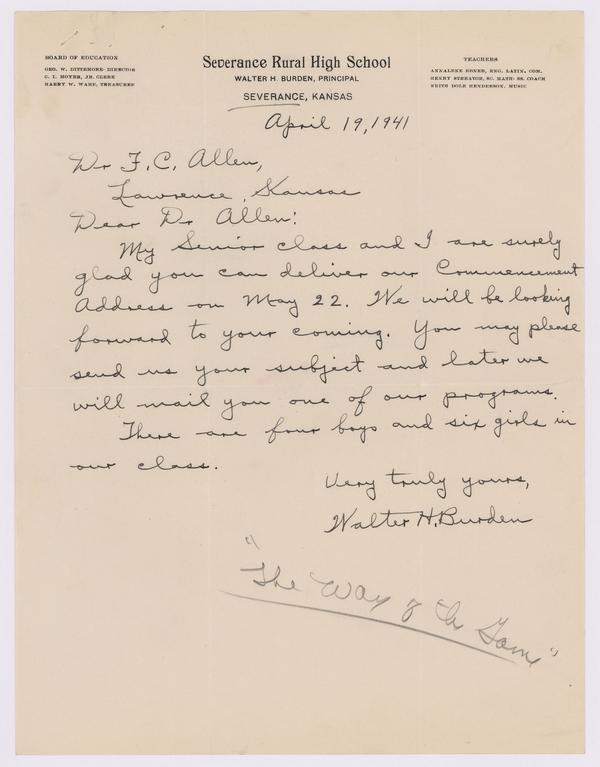 BOARD OF EDUCATION
GEO. W. DITTEMORE- DIRECTOR
C. L. MOYER, JR. CLERK
HARRY W. WARE, TREASURER
Severance Rural High School
WALTER H. BURDEN, PRINCIPAL
SEVERANCE, KANSAS
TEACHERS
ANNALENE EBNER, ENG. LATIN, COM.
HENRY STREATOR, SC. MATH- SS. COACH
KEITH DOLE HENDERSON, MUSIC
April 19, 1941
Dr F. C. Allen,
Lawrence, Kansas
Dear Dr Allen:
My Senior class and I are surely
glad you can deliver our Commencement
Address on May 22. We will be looking
forward to your coming. You may please
send us your subject and later we
will mail you one of our programs.
There are four boys and six girls in
our class.
Very truly yours,
Walter H. Burden
"The Way of the Game"